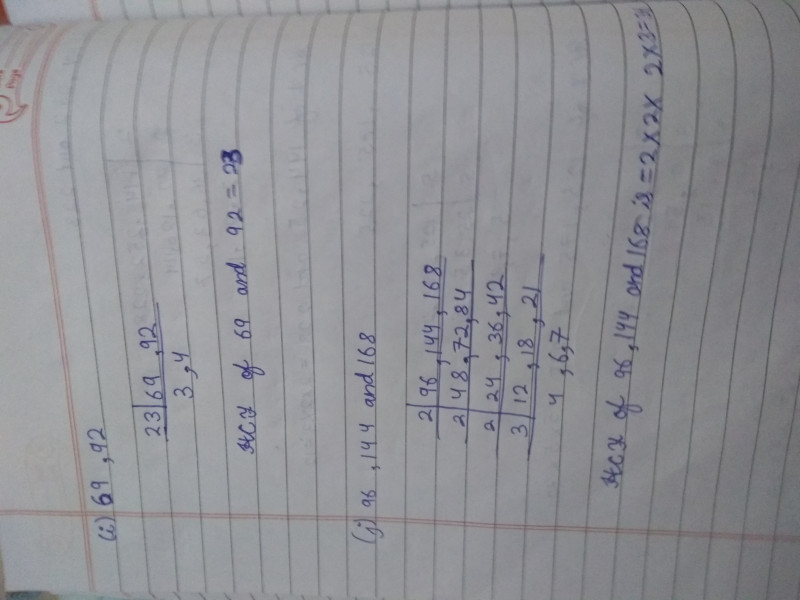 (i) 69, 92
23|69, 92
3, 4
HCF of 69 and 92 = 23
(j) 96, 144 and 168
2|96, 144, 168
2|48, 72, 84
2|24, 36, 42
3|12, 18, 21
4, 6, 7
HCF of 96, 144 and 168 is = 2×2× 2×3=